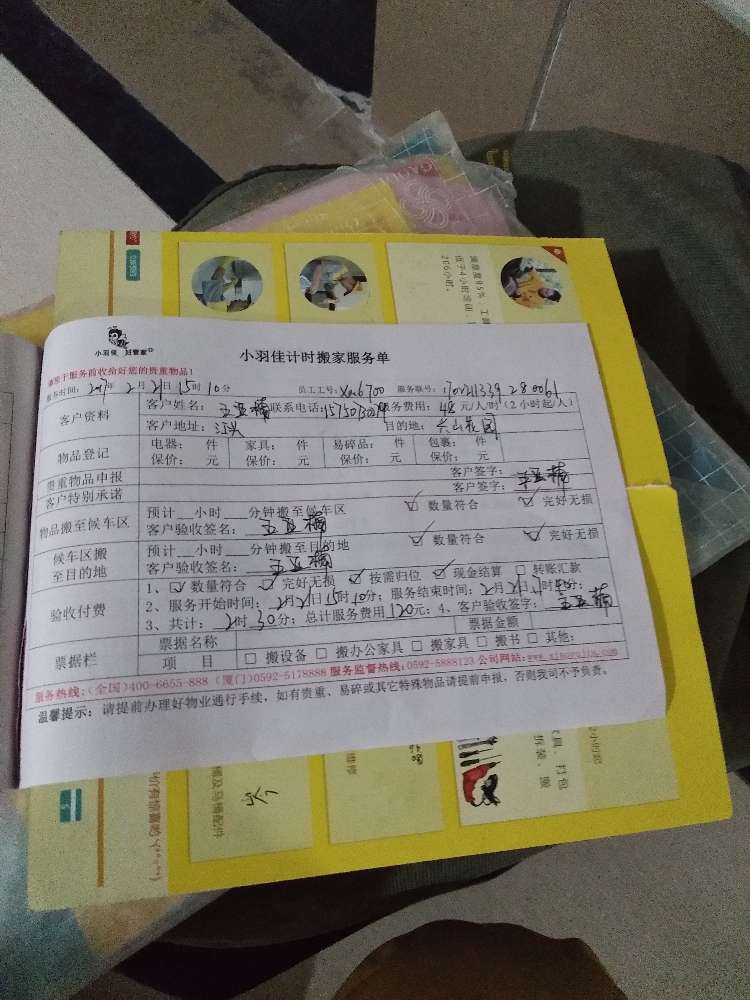 小羽佳 好管家
小羽佳计时搬家服务单
请您于服务前收拾好您的贵重物品!
服务时间: 2017年 2月21日15时10分 员工工号: Xm6700 服务联号:
客户资料
客户姓名: 王亚楠 联系电话: 服务费用: 48元/人/时(2小时起/人)
客户地址: 江头 目的地:
物品登记
电器: 件 家具: 件 易碎品: 件 包裹: 件
保价: 元 保价: 元 保价: 元 保价: 元
贵重物品申报 客户签字: 王亚楠
客户特别承诺 客户签字:
物品搬至候车区
预计__小时___分钟搬至候车区 ☑ 数量符合 ☑ 完好无损
客户验收签名: 王亚楠
候车区搬至目的地
预计__小时___分钟搬至目的地 ☑ 数量符合 ☑ 完好无损
客户验收签名: 王亚楠
验收付费
1、☑ 数量符合 ☑ 完好无损 ☑ 按需归位 ☑ 现金结算 ☐ 转账汇款
2、服务开始时间: 2月21日15时10分; 服务结束时间: 2月21日
3、共计: 2时30分; 总计服务费用120元; 4、客户验收签字: 王亚楠
票据栏
票据名称 票据金额
项 目 ☐ 搬设备 ☐ 搬办公家具 ☐ 搬家具 ☐ 搬书 ☐ 其他:
服务热线:(全国)400-6655-888 (厦门)0592-5178888 服务监督热线:0592-5888123 公司网站:
温馨提示: 请提前办理好物业通行手续, 如有贵重、易碎或其它特殊物品请提前申报, 否则我司不予负责。